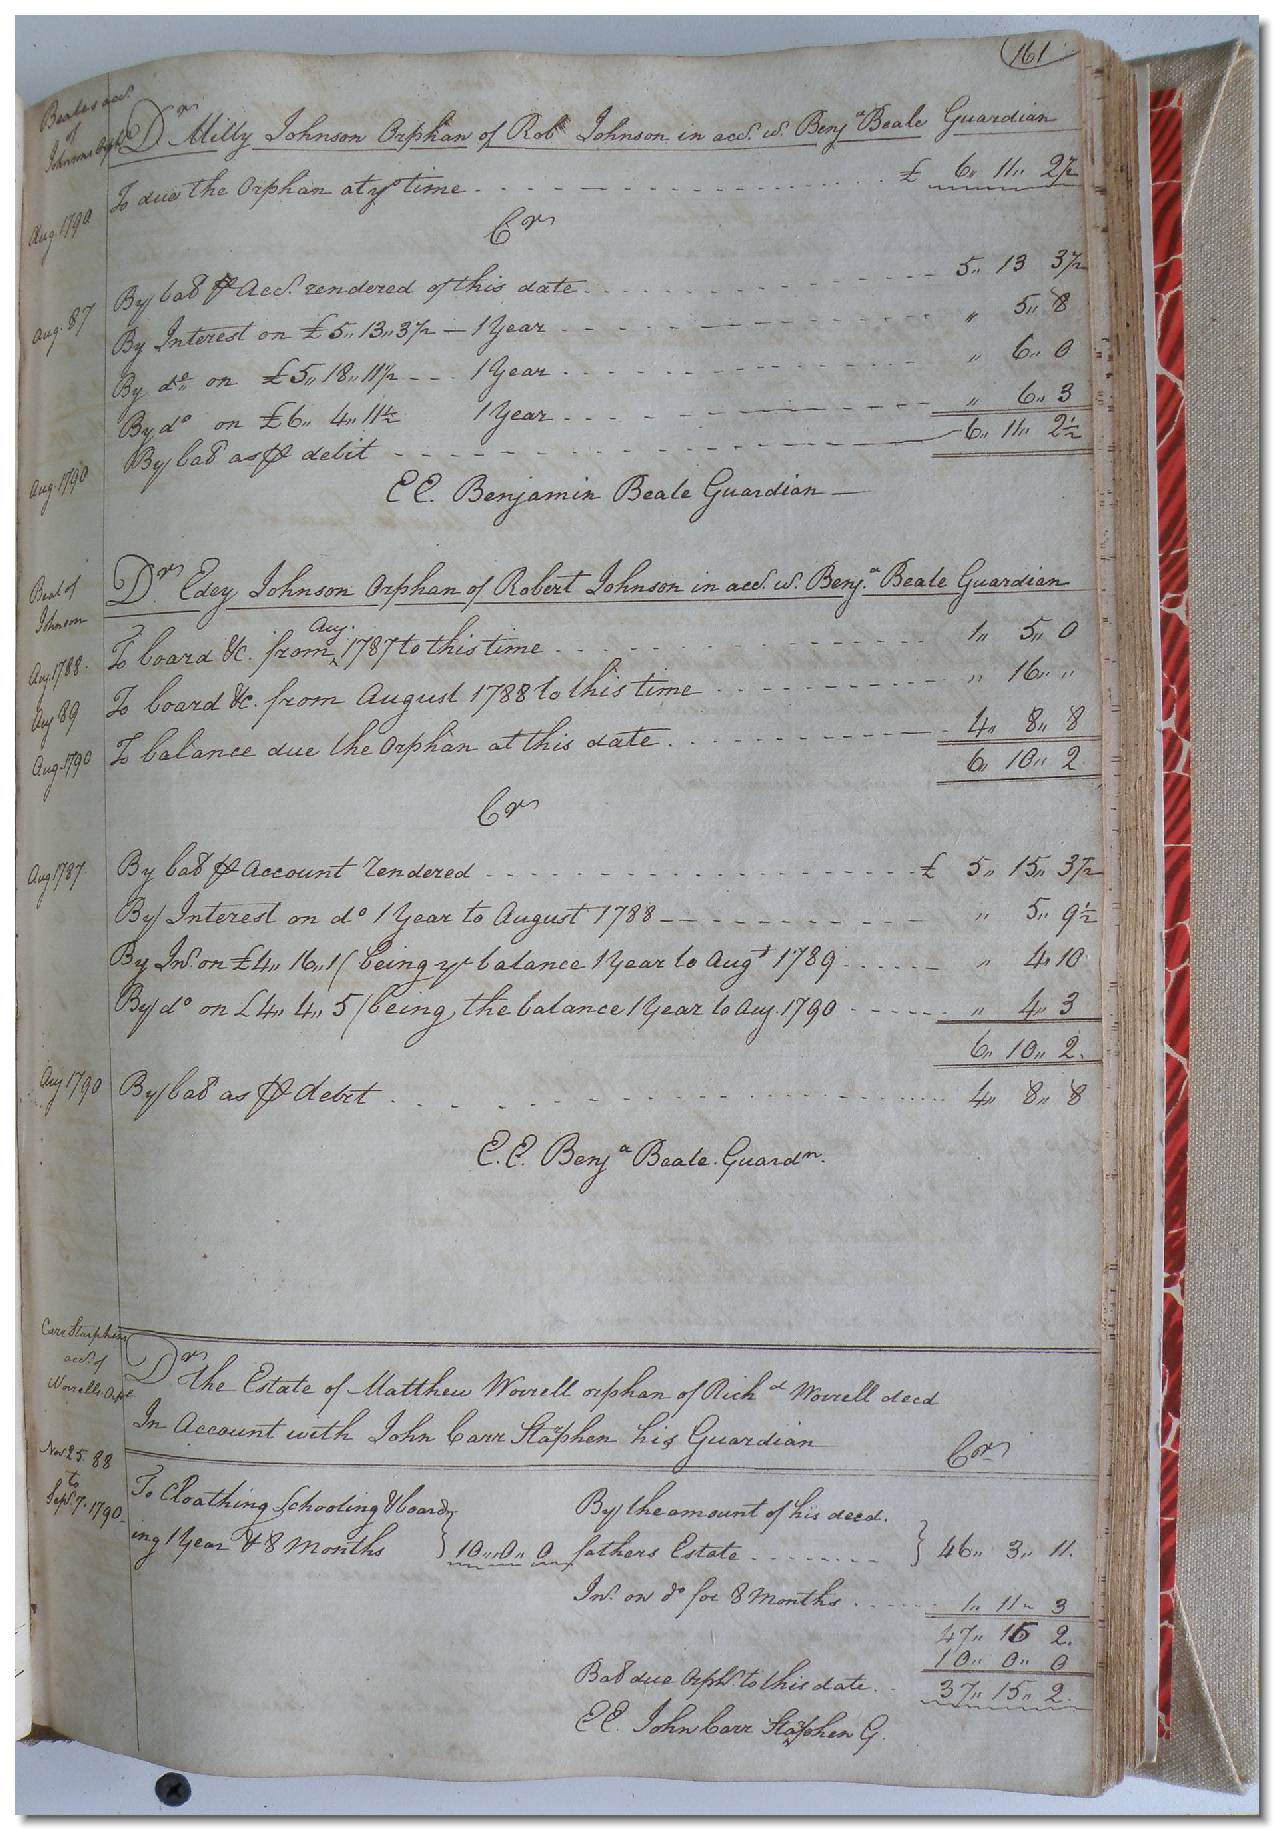 161
Beales acct.
of
Johnsons Orph.
Dr. Milly Johnson Orphan of Robt. Johnson in acct. w. Benja. Beale Guardian
Aug 1790 To due the Orphan at ye time £ 6,, 11,, 2 1/2
Cr
Aug. 87 By bal pr Acct. rendered of this date 5,, 13 3 1/2
By Interest on £5,, 13,, 3 1/2 — 1 Year ,, 5,, 8
By do. on £5,, 18,, 11 1/2 1 Year ,, 6,, 0
By do on £6,, 4,, 11 1/2 1 Year ,, 6,, 3
Aug. 1790 By bal as pr debit 6,, 11,, 2 1/2
E E. Benjamin Beale Guardian —
Beal of
Johnson
Dr. Edey Johnson Orphan of Robert Johnson in acct. w. Benja. Beale Guardian
Aug. 1788. To board &c. from Aug. 1787 to this time 1,, 5,, 0
Aug 89 To board &c. from August 1788 to this time ,, 16,, ,,
Aug. 1790 To balance due the Orphan at this date 4,, 8,, 8
6,, 10,, 2
Cr
Aug 1787 By bal pr Account rendered £ 5,, 15,, 3 1/2
By Interest on do 1 Year to August 1788 ,, 5,, 9 1/2
By Int. on £4,, 16,, 1 (being ye balance 1 Year to Augt 1789 ,, 4,, 10
By do on £4,, 4,, 5 (being the balance 1 Year to Aug. 1790 ,, 4,, 3
6,, 10,, 2.
Aug 1790 By bal as pr debit 4,, 8,, 8
E. E. Benja Beale. Guardn.
Carr Starphen
acct. of
Worrells Orp.
Dr The Estate of Matthew Worrell orphan of Richd Worrell decd
In Account with John Carr Starphen his Guardian
Cr
Nov. 25. 88
to
Sept. 7. 1790
To Cloathing Schooling & board,
ing 1 Year & 8 Months } 10,, 0,, 0
By the amount of his decd.
fathers Estate } 46,, 3,, 11.
Int. on do for 8 Months 1,, 11,, 3
47,, 15 2.
10,, 0,, 0
Bal due Orph. to this date 37,, 15,, 2.
E E. John Carr Starphen G.